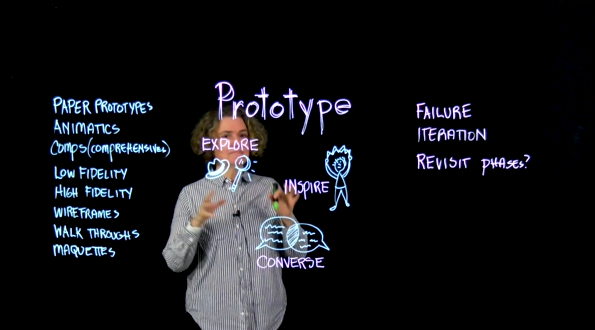 Prototype
PAPER PROTOTYPES
ANIMATICS
COMPS (COMPREHENSIVE)
LOW FIDELITY
HIGH FIDELITY
WIREFRAMES
WALK THROUGHS
MAQUETTES
EXPLORE
INSPIRE
CONVERSE
FAILURE
ITERATION
REVISIT PHASES?